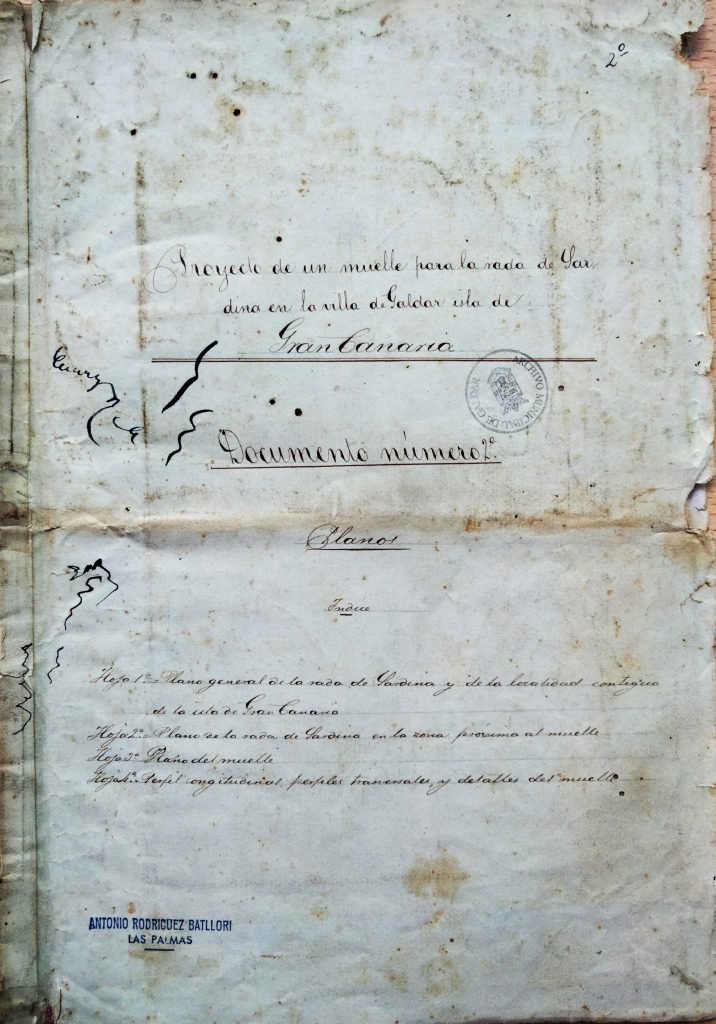 2º
Proyecto de un muelle para la rada de Sar
dina en la villa de Galdar isla de
Gran Canaria
ARCHIVO MUNICIPAL DE GALDAR
Documento número 2º.
Planos
Indice
Hoja 1ª = Plano general de la rada de Sardina y de la localidad contigua
de la isla de Gran Canaria
Hoja 2ª = Plano de la rada de Sardina en la zona próxima al muelle
Hoja 3ª Plano del muelle
Hoja 4ª = Perfil longitudinal, perfiles transversales, y detalles del muelle
ANTONIO RODRIGUEZ BATLLORI
LAS PALMAS